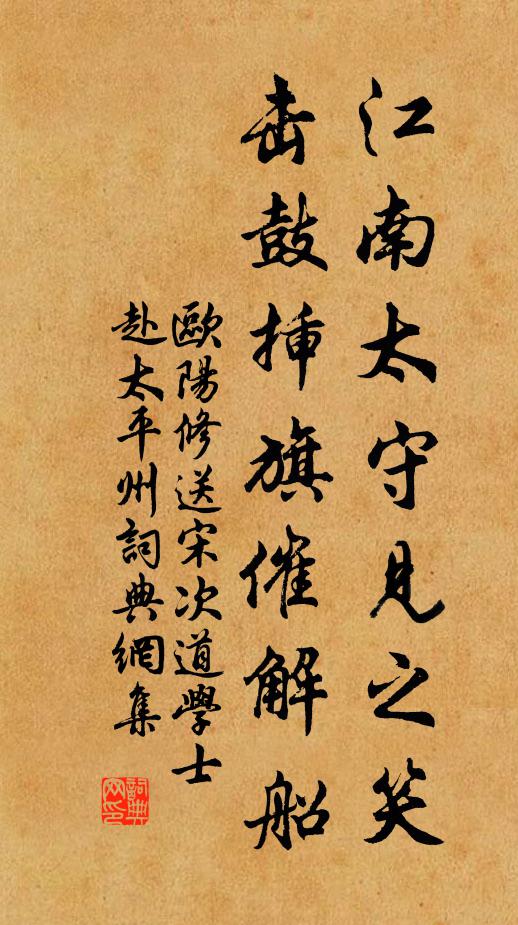 江南太守見之笑
击鼓揷旗催解船
歐陽修送宋次道學士
赴太平州詞典網集
詞典网印